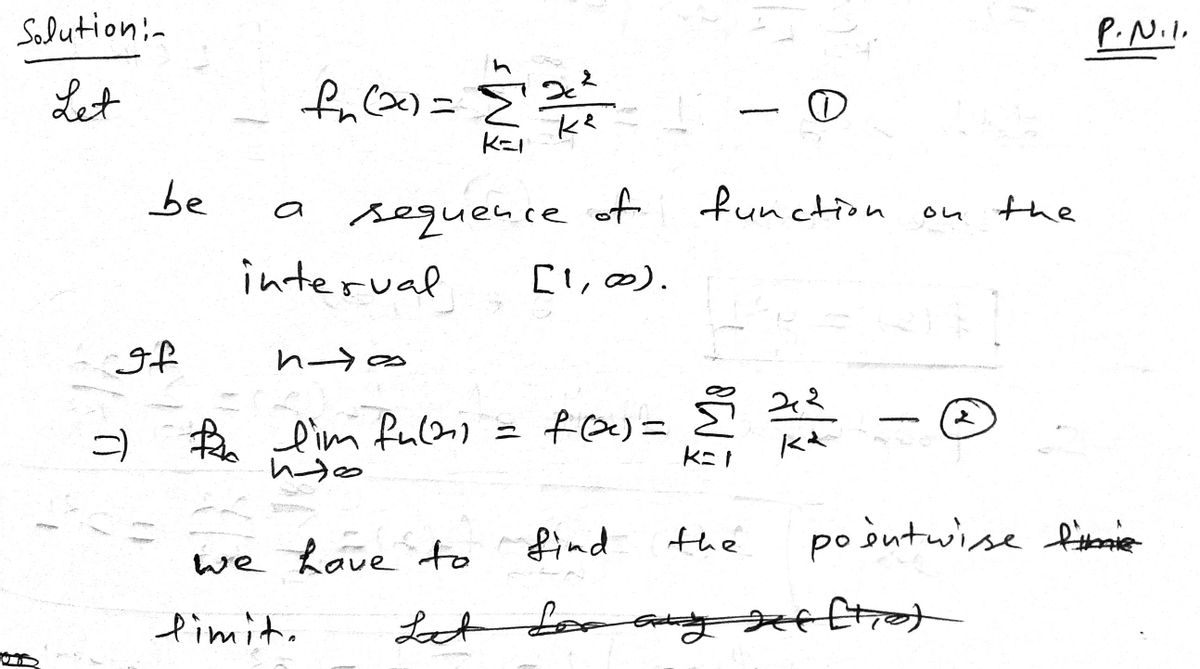 Solution:-
P.N.1.
Let fₙ(x) = ∑ₖ₌₁ⁿ x²/k² — ①
be a sequence of function on the
interval [1, ∞).
If n→∞
⇒ lim_{n→∞} fₙ(x) = f(x) = ∑ₖ₌₁^∞ x²/k² — ②
we have to find the pointwise
limit. Let for any x∈[1,∞)